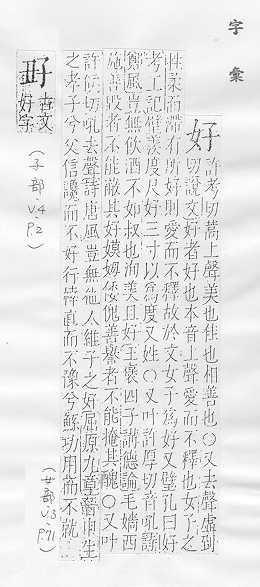 字彙
好
許考切蒿上聲美也佳也相善也〇又去聲虛到
切說文好者好也本音上聲愛而不釋也女子之
性柔而滯有所好則愛而不釋故於文女子爲好又璧孔曰好
考工記璧羨度尺好三寸以爲度又姓〇又叶許厚切音吼詩
鄭風豈無飲酒不如叔也洵美且好王褒四子講德論毛嬙西
施善毀者不能蔽其好嫫姆倭傀善譽者不能掩其醜〇又叶
許候切吼去聲詩唐風豈無他人維子之好屈原九章晉申生
之孝子兮父信讒而不好行婞直而不豫兮鯀功用而不就
(女部、v.3 p.71)
古文
好字
(子部、v.4 p.2)